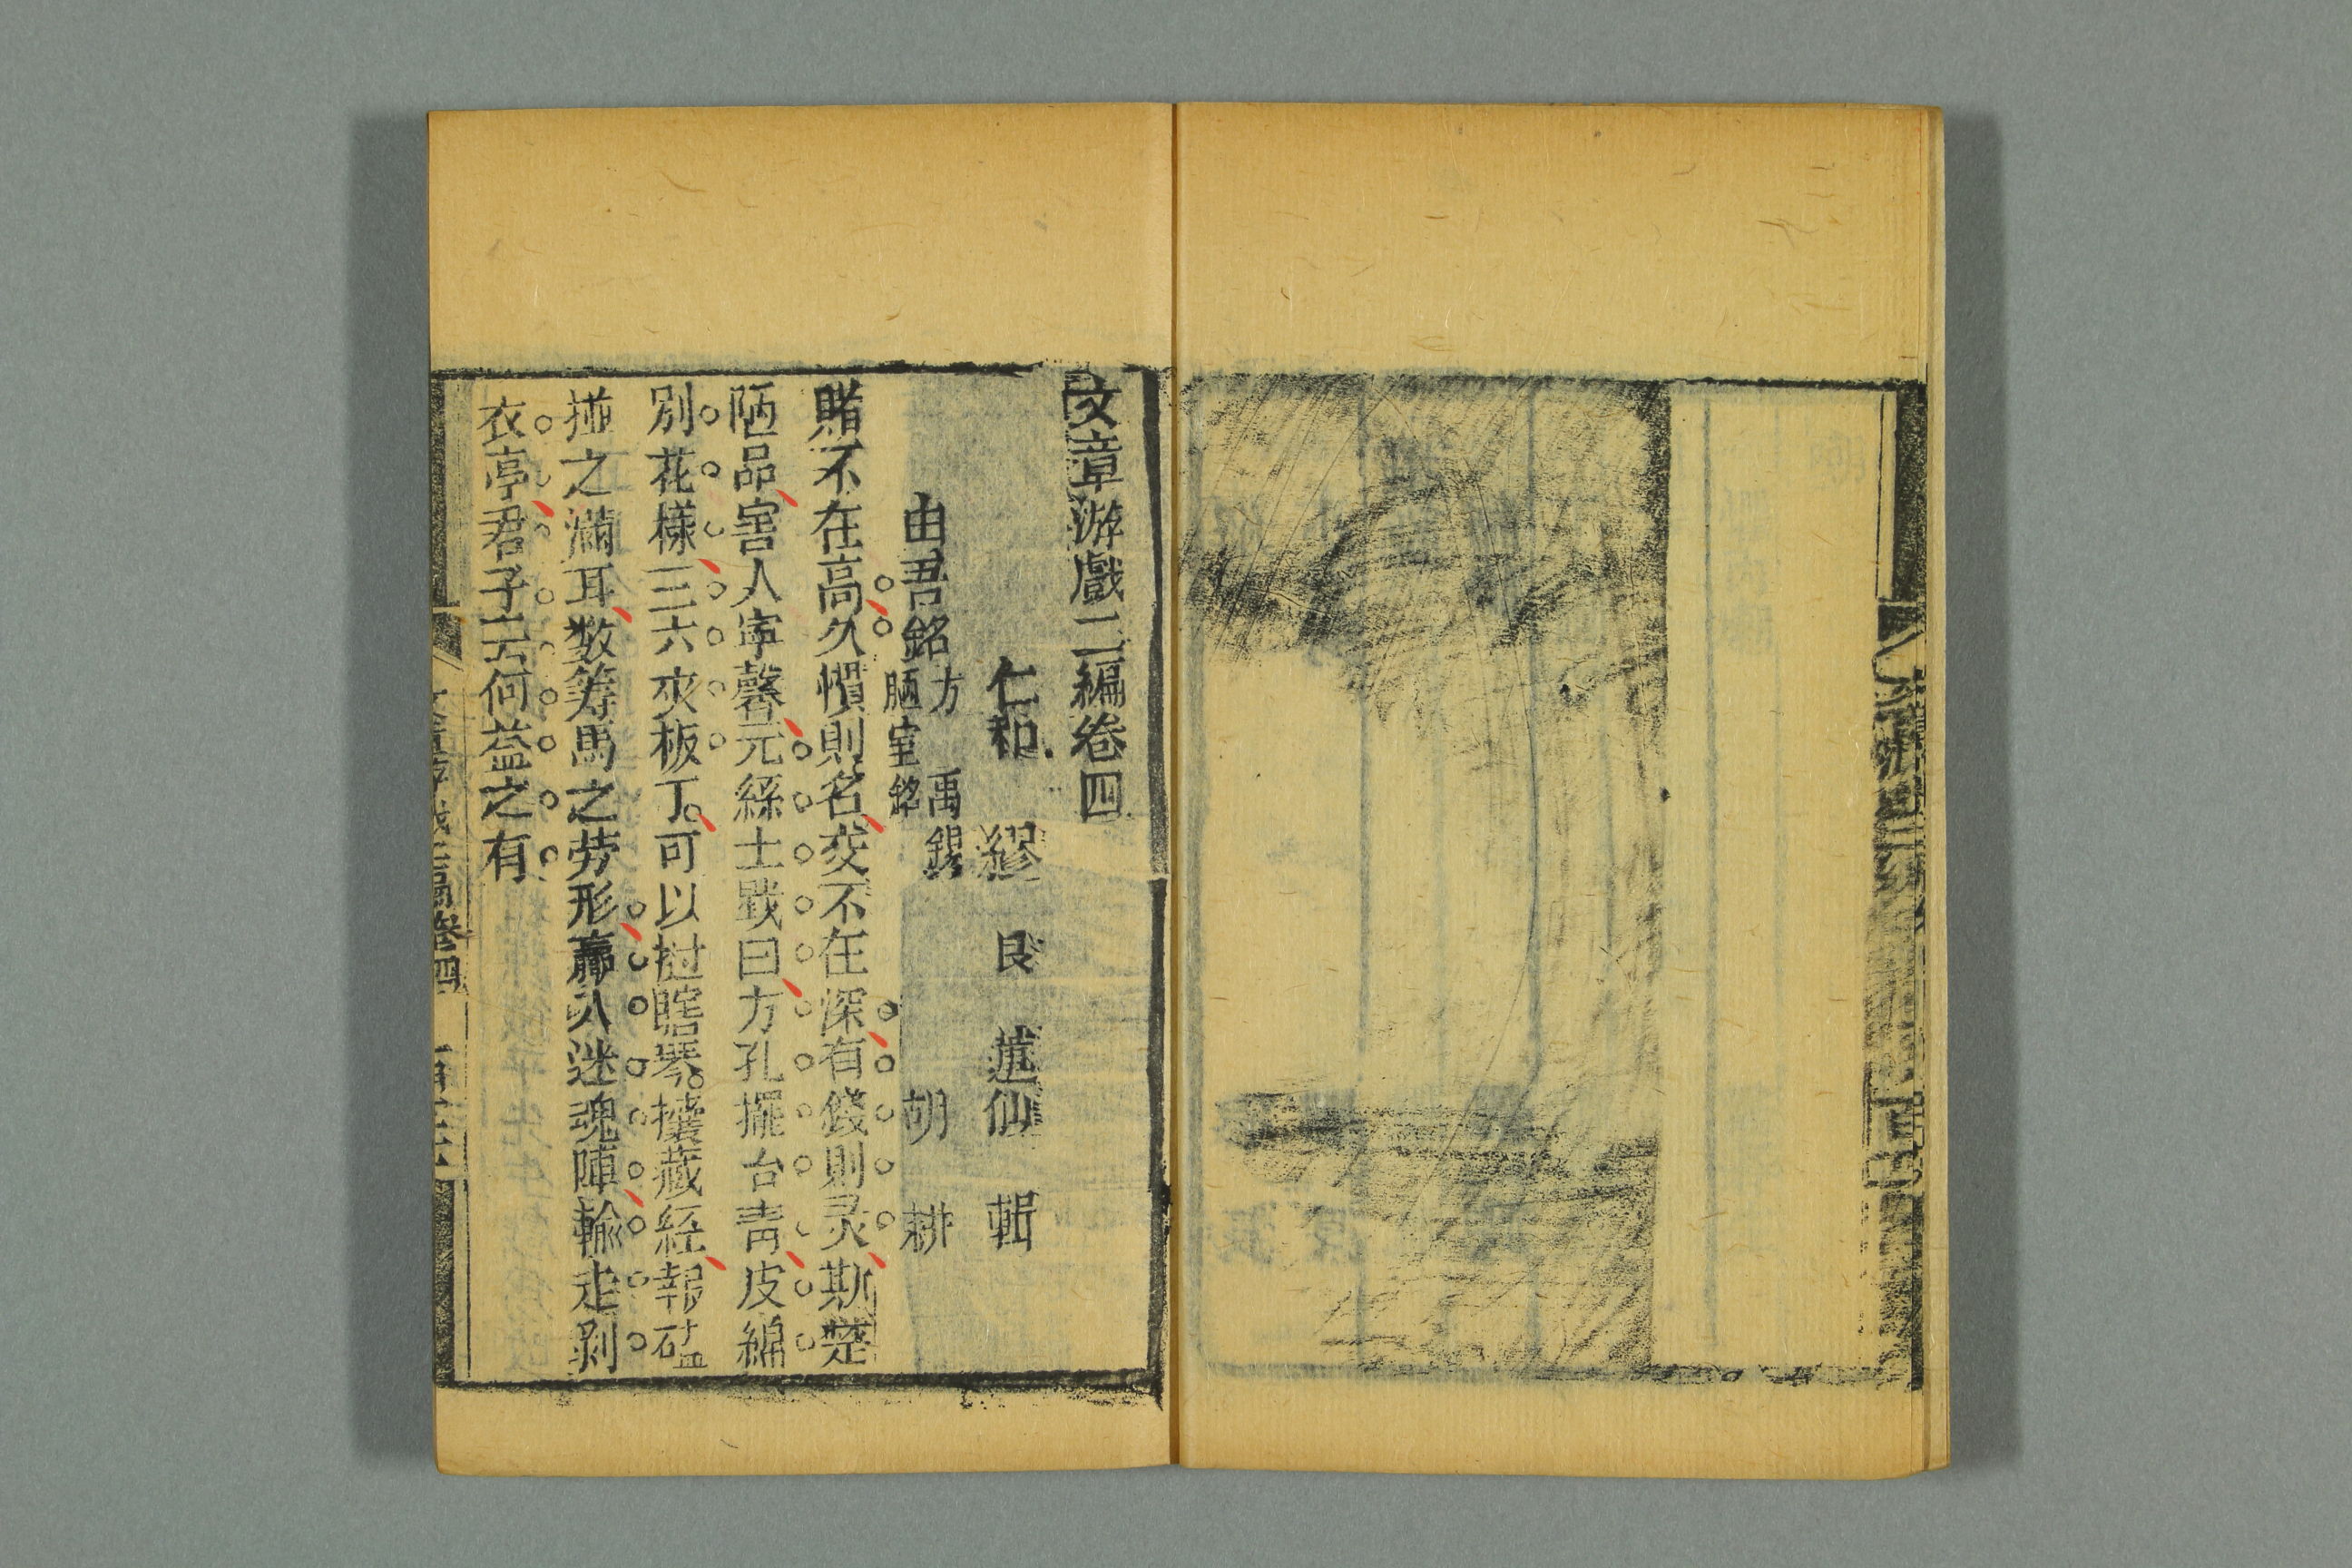 文章游戲二編卷四
仁和 繆 艮 蓮仙 輯
由吾銘 方 禹錫 陋室銘 胡 耕
賭不在高久慣則名交不在深有錢則灵斯楚
陋品害人寧馨元絲士戥曰方孔擺台青皮綿
別花樣三六夾板丁可以挝瞎琴攘藏经報
掽之滿耳数筹馬之劳形贏八迷魂陣輸走剥
衣亭君子云何益之有